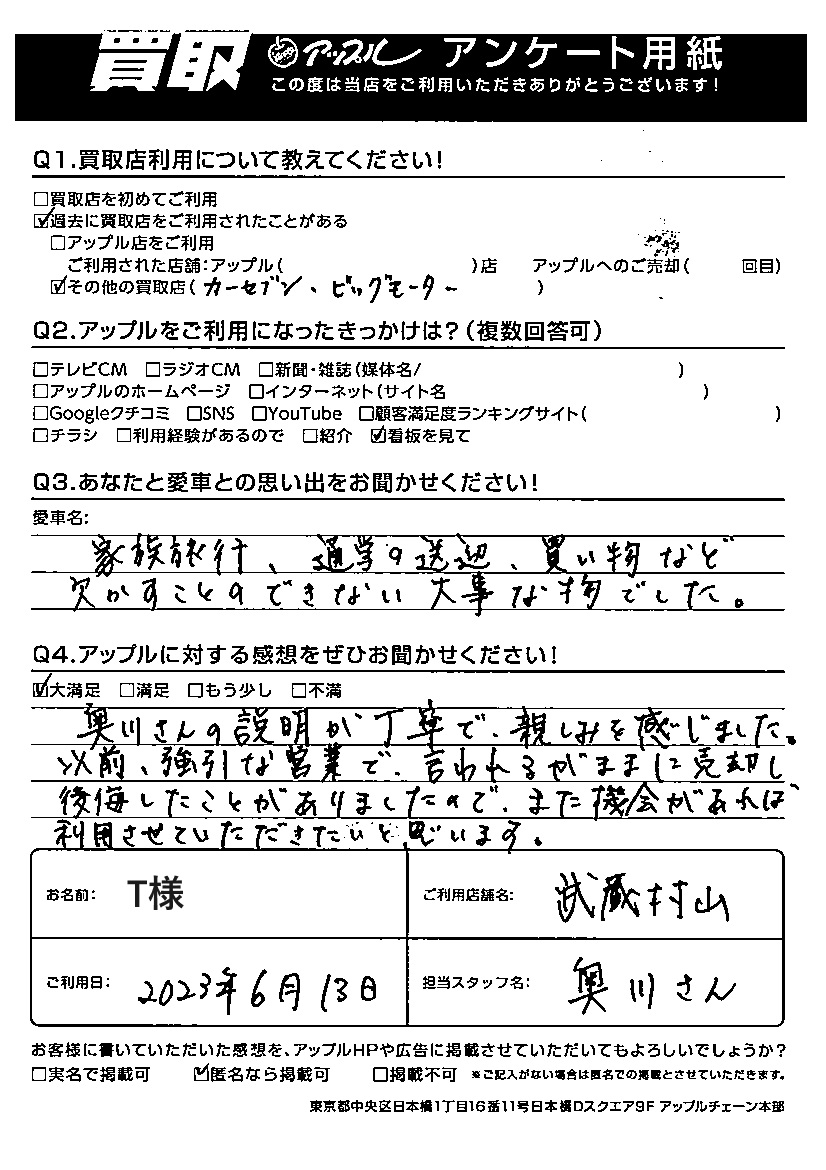 買取 アップル アンケート用紙
この度は当店をご利用いただきありがとうございます!
Q1.買取店利用について教えてください!
□買取店を初めてご利用
☑過去に買取店をご利用されたことがある
□アップル店をご利用
ご利用された店舗:アップル( )店 アップルへのご売却( 回目)
☑その他の買取店( カーセブン、ビッグモーター )
Q2.アップルをご利用になったきっかけは?(複数回答可)
□テレビCM □ラジオCM □新聞・雑誌(媒体名/ )
□アップルのホームページ □インターネット(サイト名 )
□Googleクチコミ □SNS □YouTube □顧客満足度ランキングサイト( )
□チラシ □利用経験があるので □紹介 ☑看板を見て
Q3.あなたと愛車との思い出をお聞かせください!
愛車名:
家族旅行、通学の送迎、買い物など
欠かすことのできない大事な物でした。
Q4.アップルに対する感想をぜひお聞かせください!
☑大満足 □満足 □もう少し □不満
奥川さんの説明が丁寧で、親しみを感じました。
以前、強引な営業で、言われるがままに売却し
後悔したことがありましたので、また機会があれば
利用させていただきたいと思います。
お名前: T様 ご利用店舗名: 武蔵村山
ご利用日: 2023年6月13日 担当スタッフ名: 奥川さん
お客様に書いていただいた感想を、アップルHPや広告に掲載させていただいてもよろしいでしょうか?
□実名で掲載可 ☑匿名なら掲載可 □掲載不可 ※ご記入がない場合は匿名での掲載とさせていただきます。
東京都中央区日本橋1丁目16番11号日本橋Dスクエア9F アップルチェーン本部